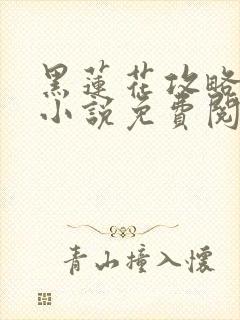 黑蓮花攻略
小說免費閱
青山撞入懷